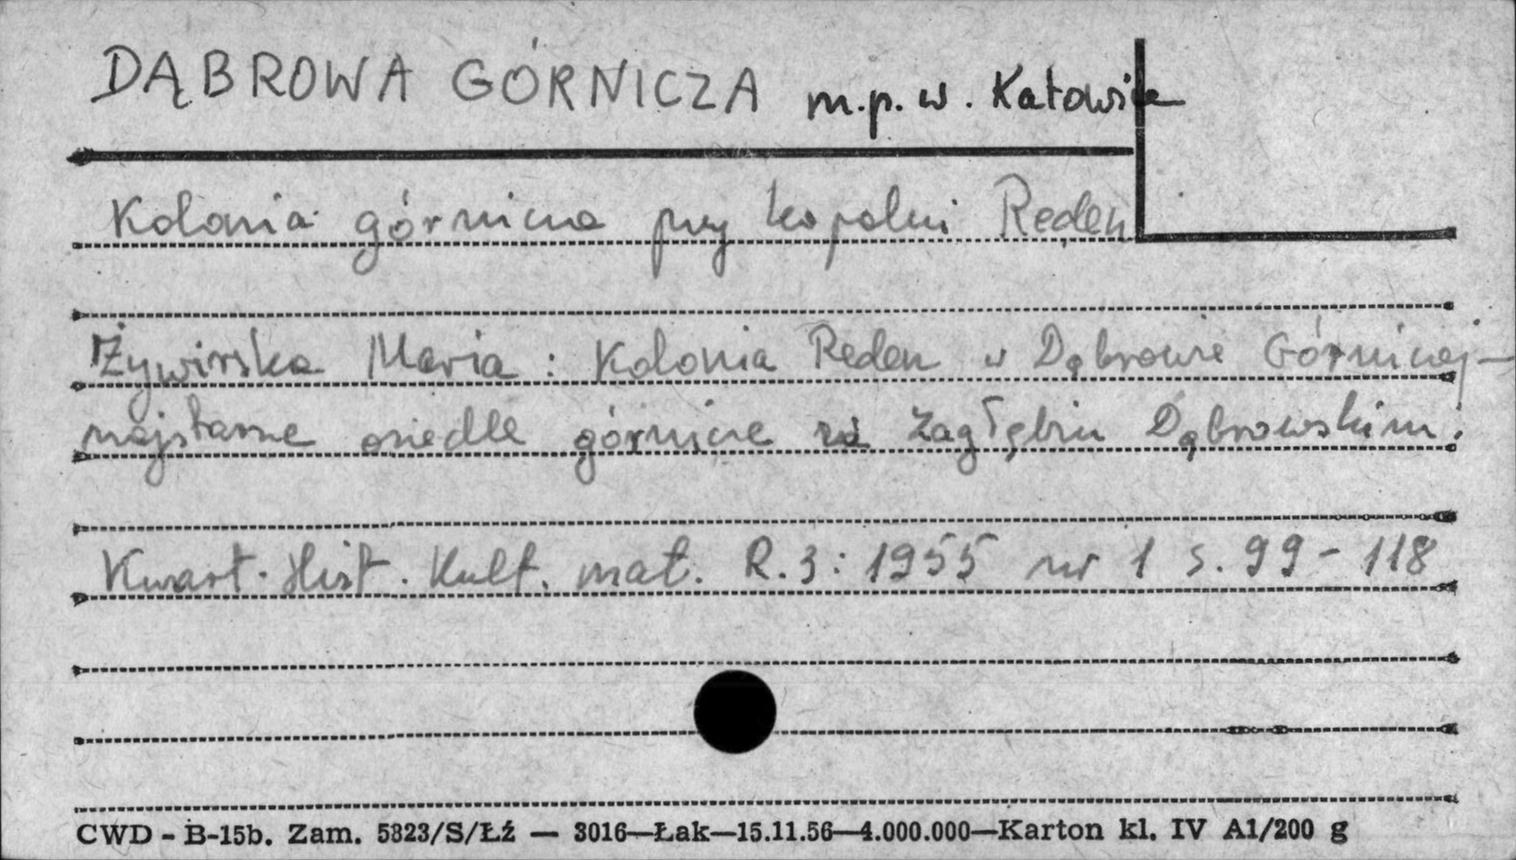 DĄBROWA GÓRNICZA m.p. w. Katowice
Kolonia górnicza przy kopalni Reden
Żywirska Maria : Kolonia Reden w Dąbrowie Górniczej –
najstarsze osiedle górnicze w Zagłębiu Dąbrowskim.
Kwart. Hist. Kult. mat. R. 3 : 1955 nr 1 s. 99 - 118
CWD - B-15b. Zam. 5823/S/ŁŹ — 3016—Łak—15.11.56—4.000.000—Karton kl. IV A1/200 g